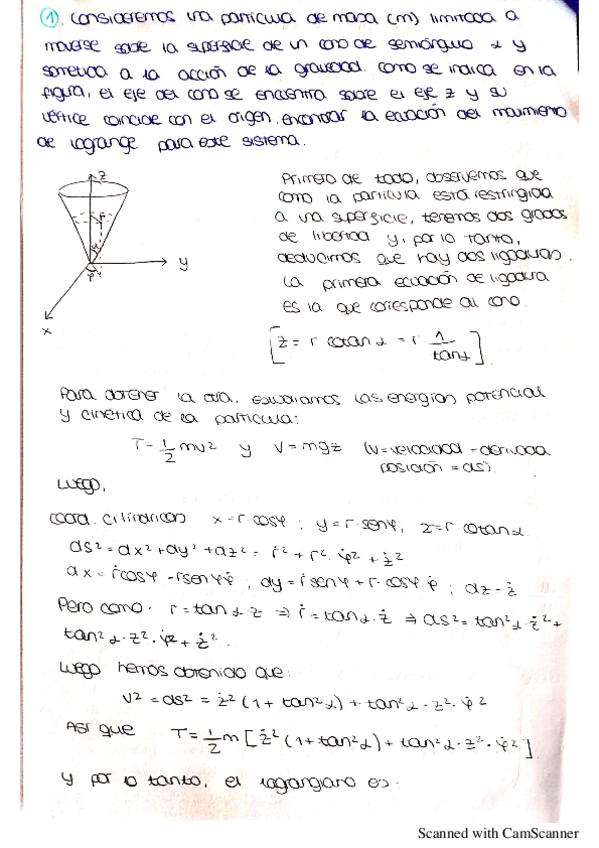 ① Consideremos una partícula de masa (m) limitada a
moverse sobre la superficie de un cono de semiángulo α y
sometida a la acción de la gravedad. Como se indica en la
figura, el eje del cono se encuentra sobre el eje z y su
vértice coincide con el origen. Encontrar la ecuación del movimiento
de lagrange para este sistema.
z
r
α
φ
y
x
Primero de todo, observemos que
como la partícula está restringida
a una superficie, tenemos dos grados
de libertad y, por lo tanto,
deducimos que hay dos ligaduras.
La primera ecuación de ligadura
es la que corresponde al cono.
[z = r cotan α = r 1/tanα]
Para obtener la otra, estudiamos las energías potencial
y cinética de la partícula:
T = 1/2 mv² y V = mgz (v = velocidad = derivada
posición = ds).
Luego,
coord. cilíndricas x = r·cosφ ; y = r·senφ, z = r·cotan α
ds² = dx² + dy² + dz² = ṙ² + r²·φ̇² + ż²
dx = ṙcosφ - rsenφ φ̇ ; dy = ṙsenφ + r·cosφ φ̇ ; dz = ż
Pero como. r = tan α z ⇒ ṙ = tan α·ż ⇒ ds² = tan²α·ż² +
tan²α·z²·φ̇² + ż².
Luego hemos obtenido que:
v² = ds² = ż² (1 + tan²α) + tan²α·z²·φ̇²
Así que T = 1/2 m [ż² (1 + tan²α) + tan²α·z²·φ̇²]
y por lo tanto, el lagangiano es:
Scanned with CamScanner